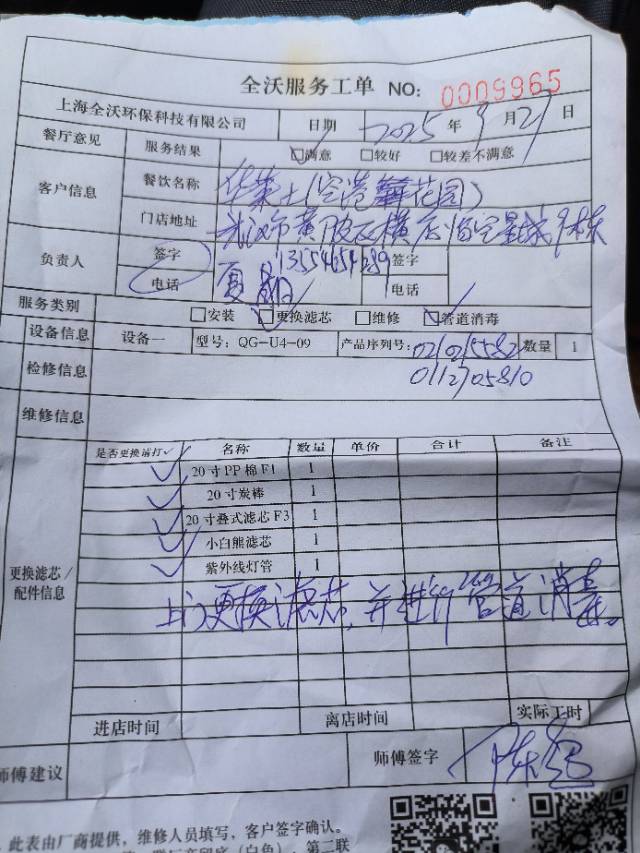 全沃服务工单 NO: 0009965
上海全沃环保科技有限公司 日期 2025年9月21日
餐厅意见 服务结果 ☑满意 □较好 □较差不满意
客户信息 餐饮名称 华莱士(空港 花园)
门店地址 武汉市黄陂区横店 空星城9栋
负责人 签字 夏 13554654389 签字
电话 电话
服务类别 □安装 ☑更换滤芯 □维修 ☑管道消毒
设备信息 设备一 型号: QG-U4-09 产品序列号: 0210215582 数量 1
检修信息 0112705810
维修信息
更换滤芯/配件信息 是否更换请打✓ 名称 数量 单价 合计 备注
✓ 20寸PP棉F1 1
✓ 20寸炭棒 1
✓ 20寸叠式滤芯F3 1
✓ 小白熊滤芯 1
✓ 紫外线灯管 1
上门更换滤芯,并进行管道消毒。
进店时间 离店时间 实际工时
师傅建议 师傅签字 陈
此表由厂商提供,维修人员填写,客户签字确认。
(白色),第二联